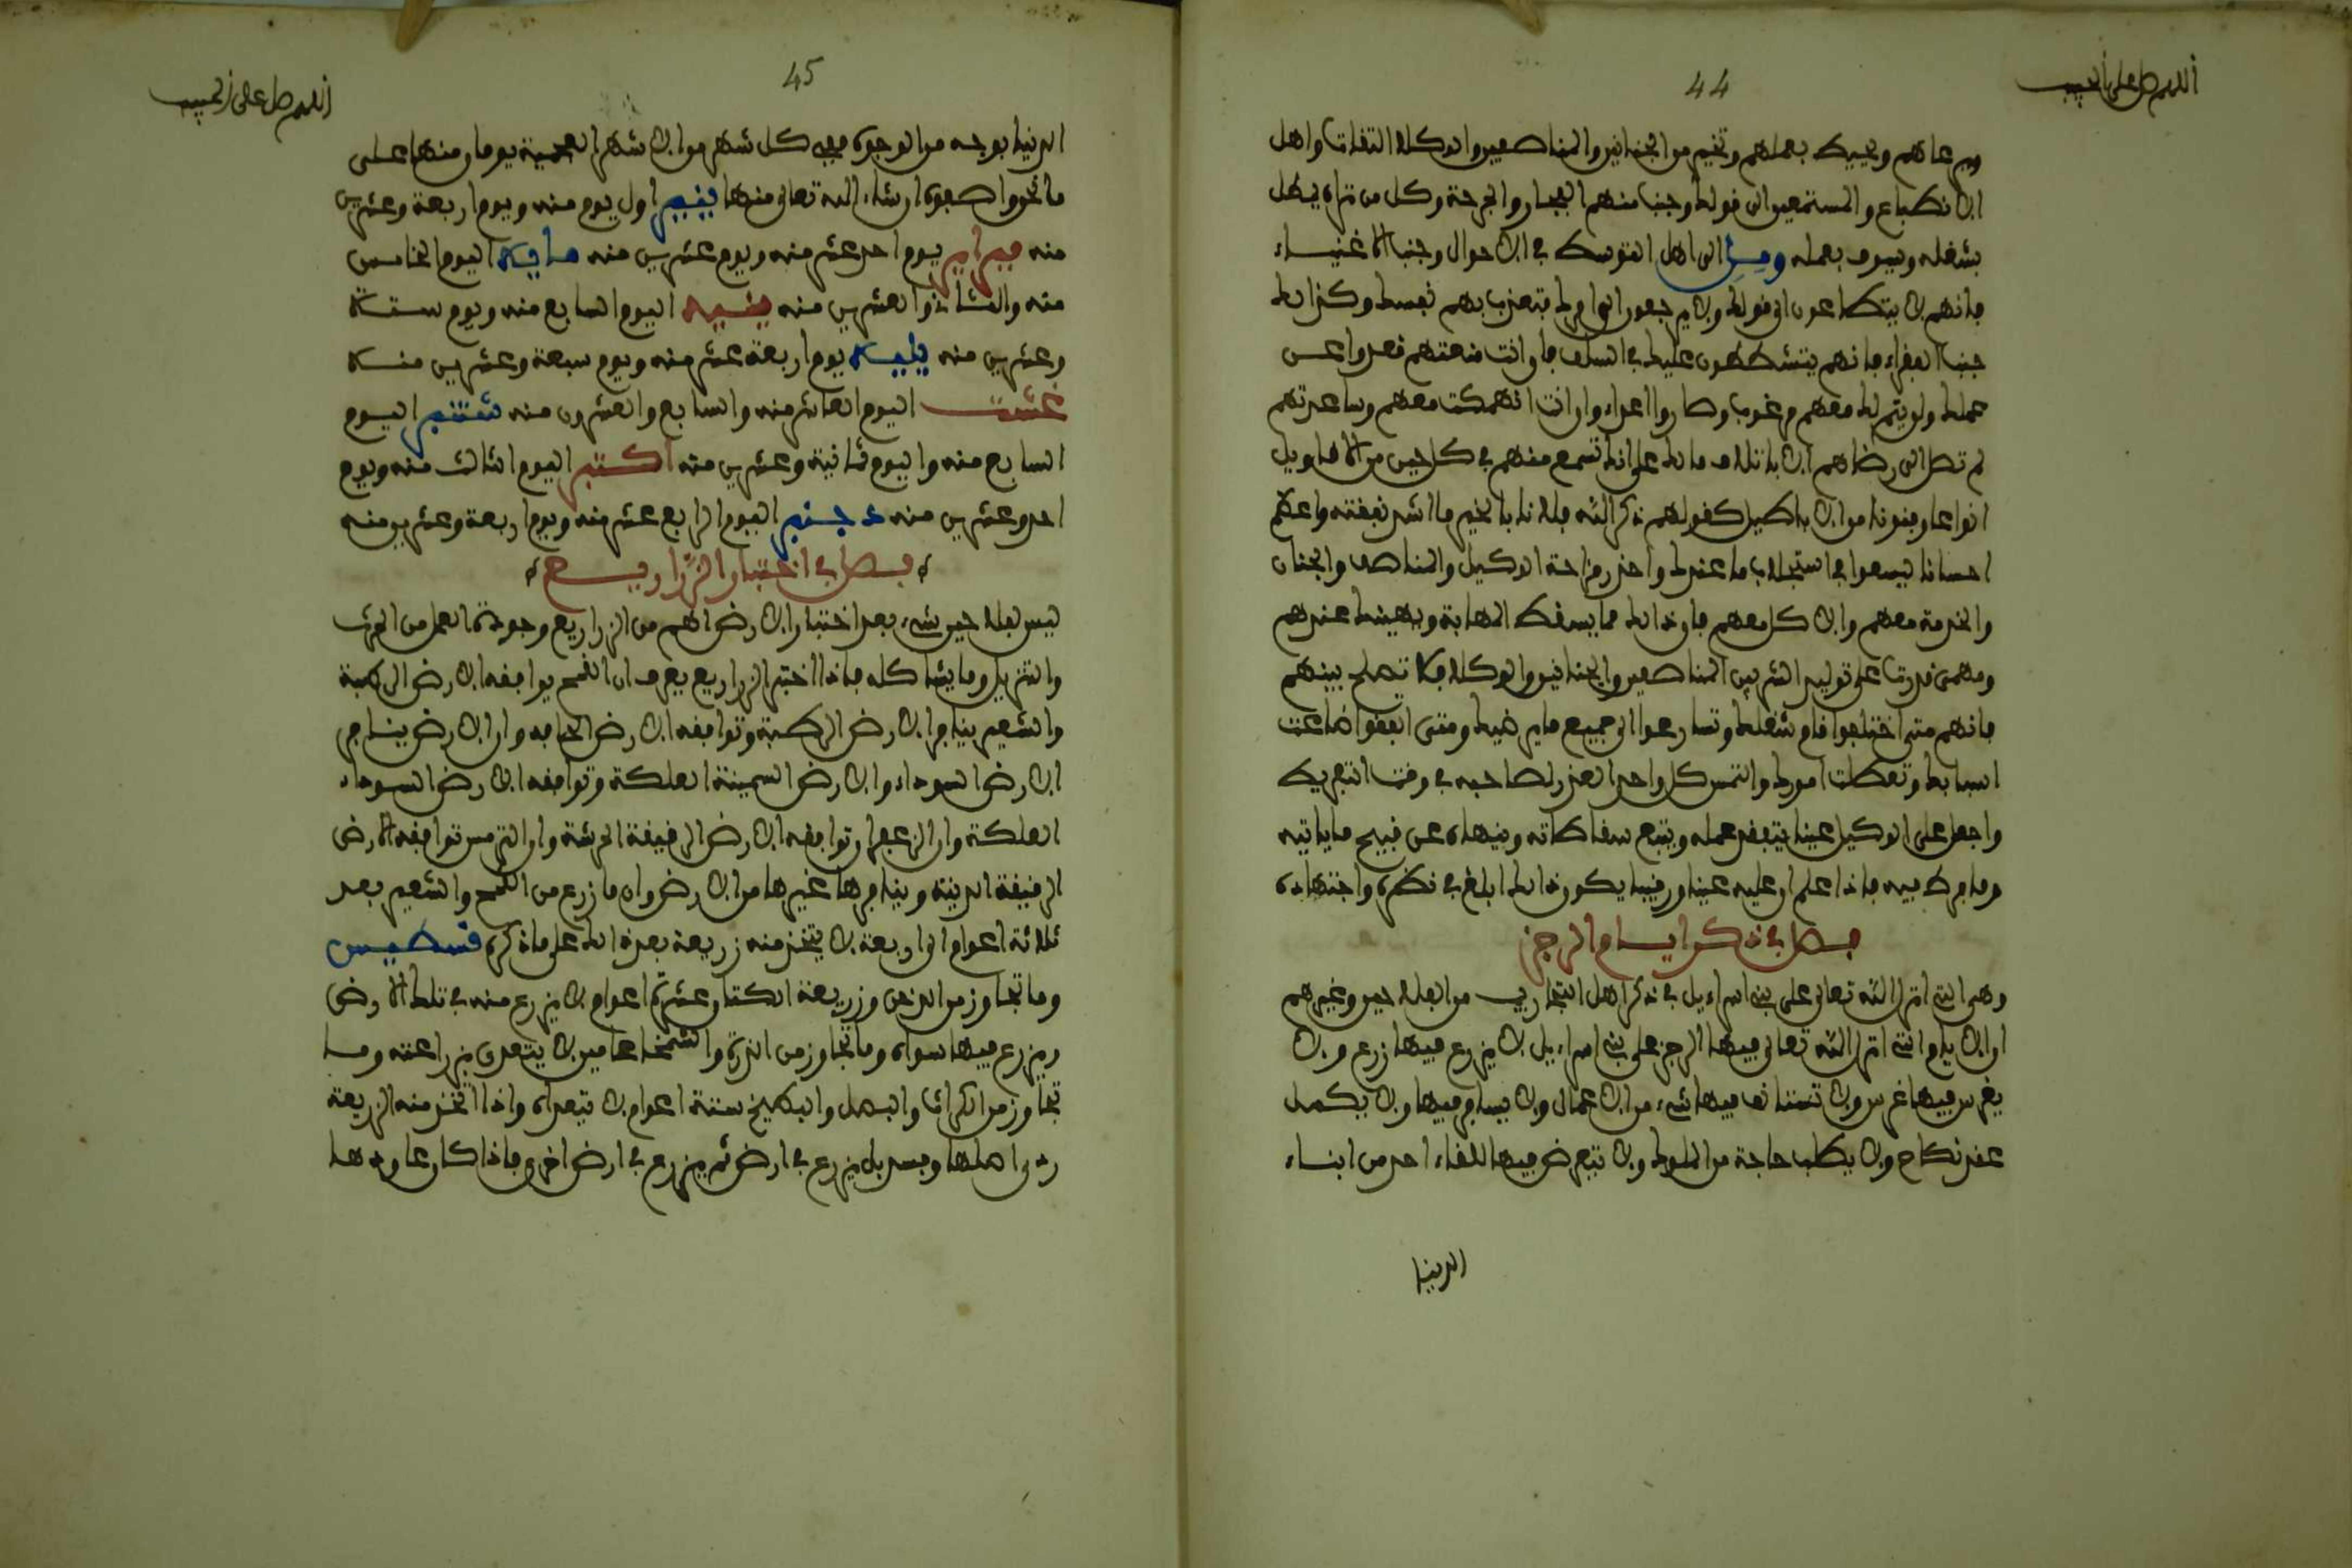 اللهم صل على الحبيب
44
ويرعاهم ويحيط بعملهم وتخير من الجنانين والمناصفين والوكلاء الثقات واهل
الانطباع والمستمعين الى قولك وجنب منهم الفجار والجرحة وكل من تراه يخل
بشغله ويسوف بعمله ومل الى اهل التوسط في الاحوال وجنب الاغنياء
فانهم لا يتطاعون الى قولك ولا يرجعون الى امرك فتعذب بهم نفسك وكذالك
جنب الفقراء فانهم يتشططون عليك في السلف فان انت منعتهم قعدوا عن
عملك ولن يتم لك معهم مرغوب وصاروا اعداء وان انت انهمكت معهم وساعدتهم
لم تصل الى رضاهم الا باتلاف مالك على انك تسمع منهم في كل حين من الاقاويل
انواعا وفنونا من الاباطيل كقولهم ذكر الله فلانا بالخير ما اشد نفقته واعظم
احسانه ليسعوا في استجلاب ما عندك واحذر مزاحة الوكيل والمناصف والجنان
والخدمة معهم والاكل معهم فان ذالك مما يسقط المهابة ويهينك عندهم
ومهمى قدرت على توليد الشر بين المناصفين والجنانين والوكلاء فلا تصلح بينهم
فانهم متى اختلفوا قام شغلك وتسارعوا الى جميع ما يرضيك ومتى اتفقوا ضاعت
اسبابك وتعطلت امورك والتمس كل واحد العذر لصاحبه في وقت التفريط
واجعل على الوكيل عينا يتفقد عمله ويتبع سقاطاته وينهاه عن قبيح ما ياتيه
وما فرط فيه فاذا علم ان عليه عينا ورقيبا يكون ذالك ابلغ في نظره واجتهاده
فصل في ذكر ايام الرجز
وهي التي انزل الله تعالى على بني اسراءيل في ذكر اهل التجاريب من الفلاحين وغيرهم
ان الايام التي انزل الله تعالى فيها الرجز على بني اسراءيل لا يزرع فيها زرع ولا
يغرس فيها غرس ولا تستانف فيها شيء من الاعمال ولا يسافر فيها ولا يكمل
عقد نكاح ولا يطلب حاجة من الملوك ولا تتعرض فيها للقاء احد من ابناء
الدنيا
اللهم صل على الحبيب
45
الدنيا بوجه من الوجوه ففي كل شهر من الاشهر العجمية يوما ومنها على
ما نحو اصفوه ان شاء الله تعالى منها ينير اول يوم منه ويوم اربعة وعشرين
منه فبراير يوم احد عشر منه ويوم عشرين منه مايه اليوم الخامس
منه والثاني والعشرين منه ينيه اليوم السابع منه ويوم ستة
وعشرين منه يليه يوم اربعة عشر منه ويوم سبعة وعشرين منه
غشت اليوم العاشر منه والسابع والعشرون منه شتنبر اليوم
السابع منه واليوم ثمانية وعشرين منه اكتبر اليوم الثالث منه ويوم
احد وعشرين منه دجنبر اليوم الرابع عشر منه ويوم اربعة وعشرين منه
فصل في اختبار الزراريع
ليس لفلاحين شيء بعد اختبار الارض اهم من الزراريع وجودة العمل من الحرث
والتزبيل وما يشاكله فاذا اختبر الزراريع يعرف ان القمح يوافقه الارض الرطبة
والشعير ينافر الارض الرطبة وتوافقه الارض الجافه وان الارض ينافر
الارض السوداء والارض السمينة العلكة وتوافقه الارض السوداء
العلكة وان الزعفران توافقه الارض الرقيقة الحرشة وان الترمس توافقه الارض
الرقيقة اللينة وينافرها غيرها من الارض وان ما زرع من القمح والشعير بعد
ثلاثة اعوام الى اربعة لا يتخذ منه زريعة بعد ذالك على ما ذكره قسطيس
وما تجاوز من الدخن وزريعة الكتان عشرة اعوام لا يزرع منه في تلك الارض
ويزرع فيها سواه وما تجاوز من الذرة والشمخ عامين لا يتعدى بزراعته وما
تجاوز من الكراث والبصل والبطيخ ستة اعوام لا تتعداه واذا اتخذ منه الزريعة
ردى اصلها وفسد بل يزرع في ارض ثم يزرع في ارض اخرى فاذا كان عاودها